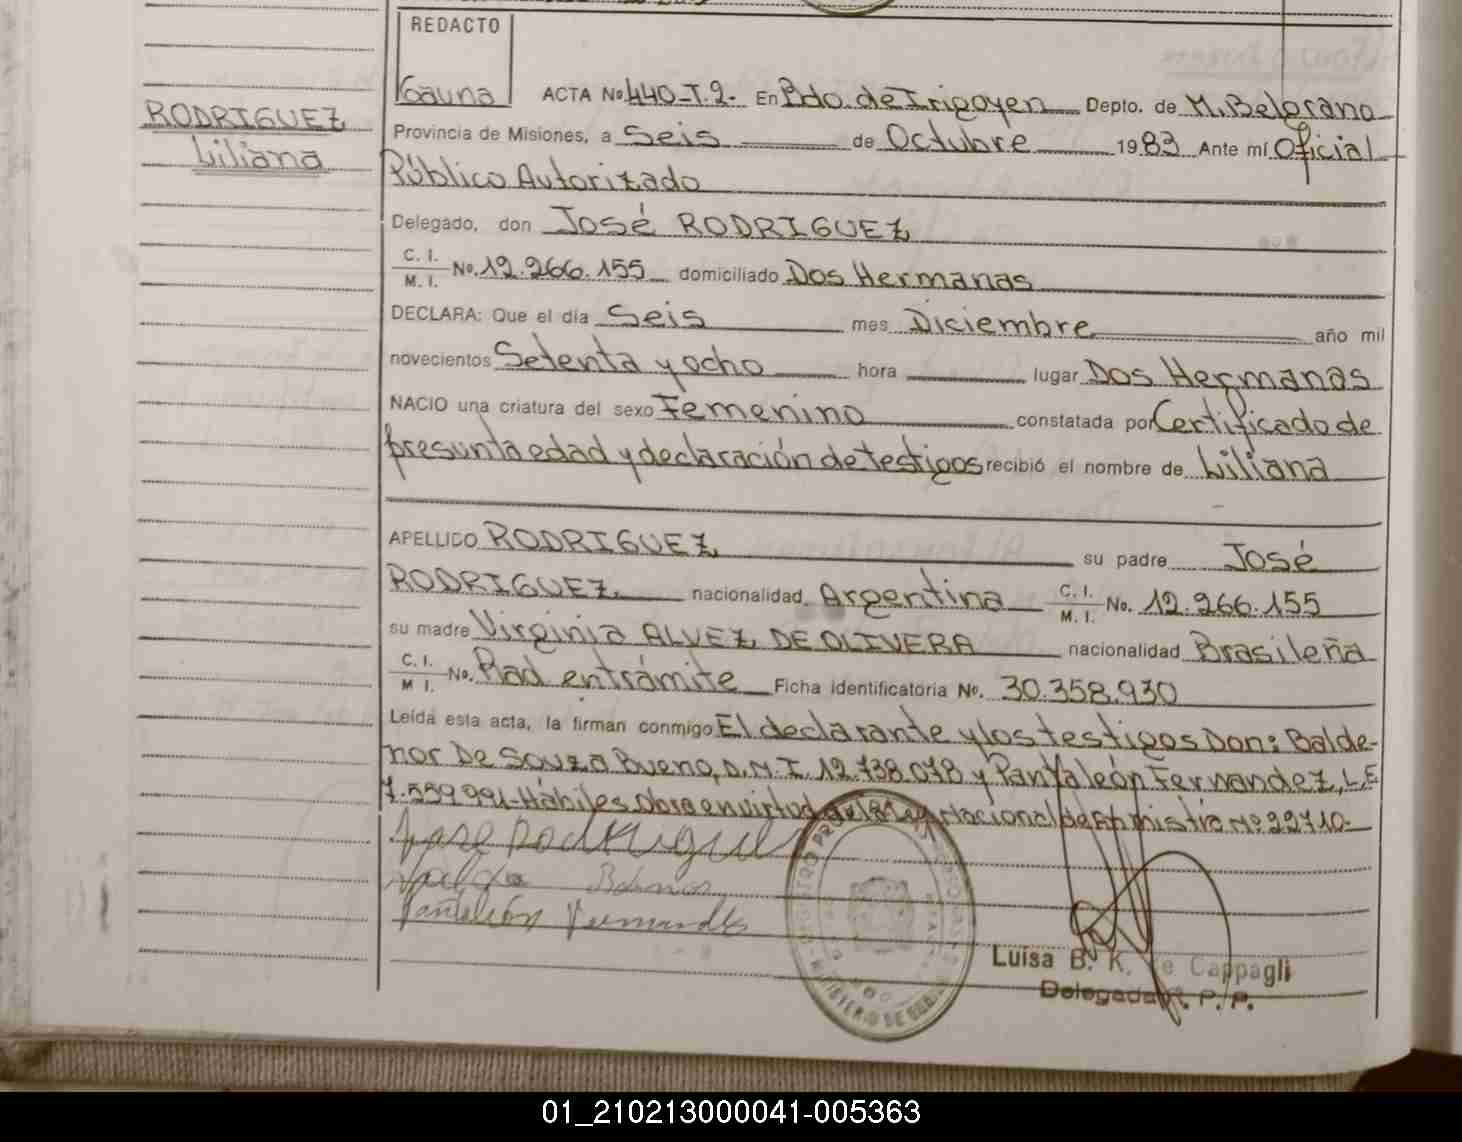 REDACTO
Gauna
ACTA No 440-T.2- En Bdo. de Irigoyen Depto. de M. Belgrano
RODRIGUEZ
Liliana
Provincia de Misiones, a Seis de Octubre 1983 Ante mí Oficial
Público Autorizado
Delegado, don José RODRIGUEZ
C. I.
M. I. No. 12.266.155 domiciliado Dos Hermanas
DECLARA: Que el día Seis mes Diciembre año mil
novecientos Setenta y ocho hora lugar Dos Hermanas
NACIO una criatura del sexo Femenino constatada por Certificado de
presunta edad y declaración de testigos recibió el nombre de Liliana
APELLIDO RODRIGUEZ su padre José
RODRIGUEZ nacionalidad Argentina C. I.
M. I. No. 12.266.155
su madre Virginia ALVEZ DE OLIVERA nacionalidad Brasileña
C. I.
M I. No. Rad en trámite Ficha identificatoria No. 30.358.930
Leída esta acta, la firman conmigo El declarante y los testigos Don: Balde-
nor De Souza Bueno, D.N.I. 12.738.078 y Pantaleón Fernandez, L.E
7.559.991-Hábiles. Obra en virtud de la Ley Nacional de Amnistía Nº 22710-
Jose Rodriguez
Pantaleón Fernandez
Luisa B. K. de Cappagli
Delegada R. P. P.
MINISTERIO DE GOBIERNO
01_210213000041-005363